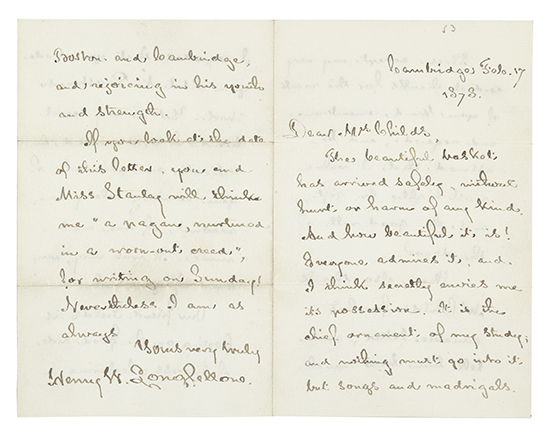 53
Cambridge Feb. 17
1878.
Dear Mrs Childs,
The beautiful basket
has arrived safely, without
hurt or harm of any kind.
And how beautiful it is!
Everyone admires it, and
I think secretly envies me
its possession. It is the
chief ornament of my study;
and nothing must go into it
but songs and madrigals.
Boston and Cambridge,
and rejoicing in his youth
and strength.
If you look at the date
of this letter, you and
Miss Stanley will think
me "a pagan, nurtured
in a worn-out creed",
for writing on Sunday!
Nevertheless I am as
always
Yours very truly
Henry W. Longfellow.